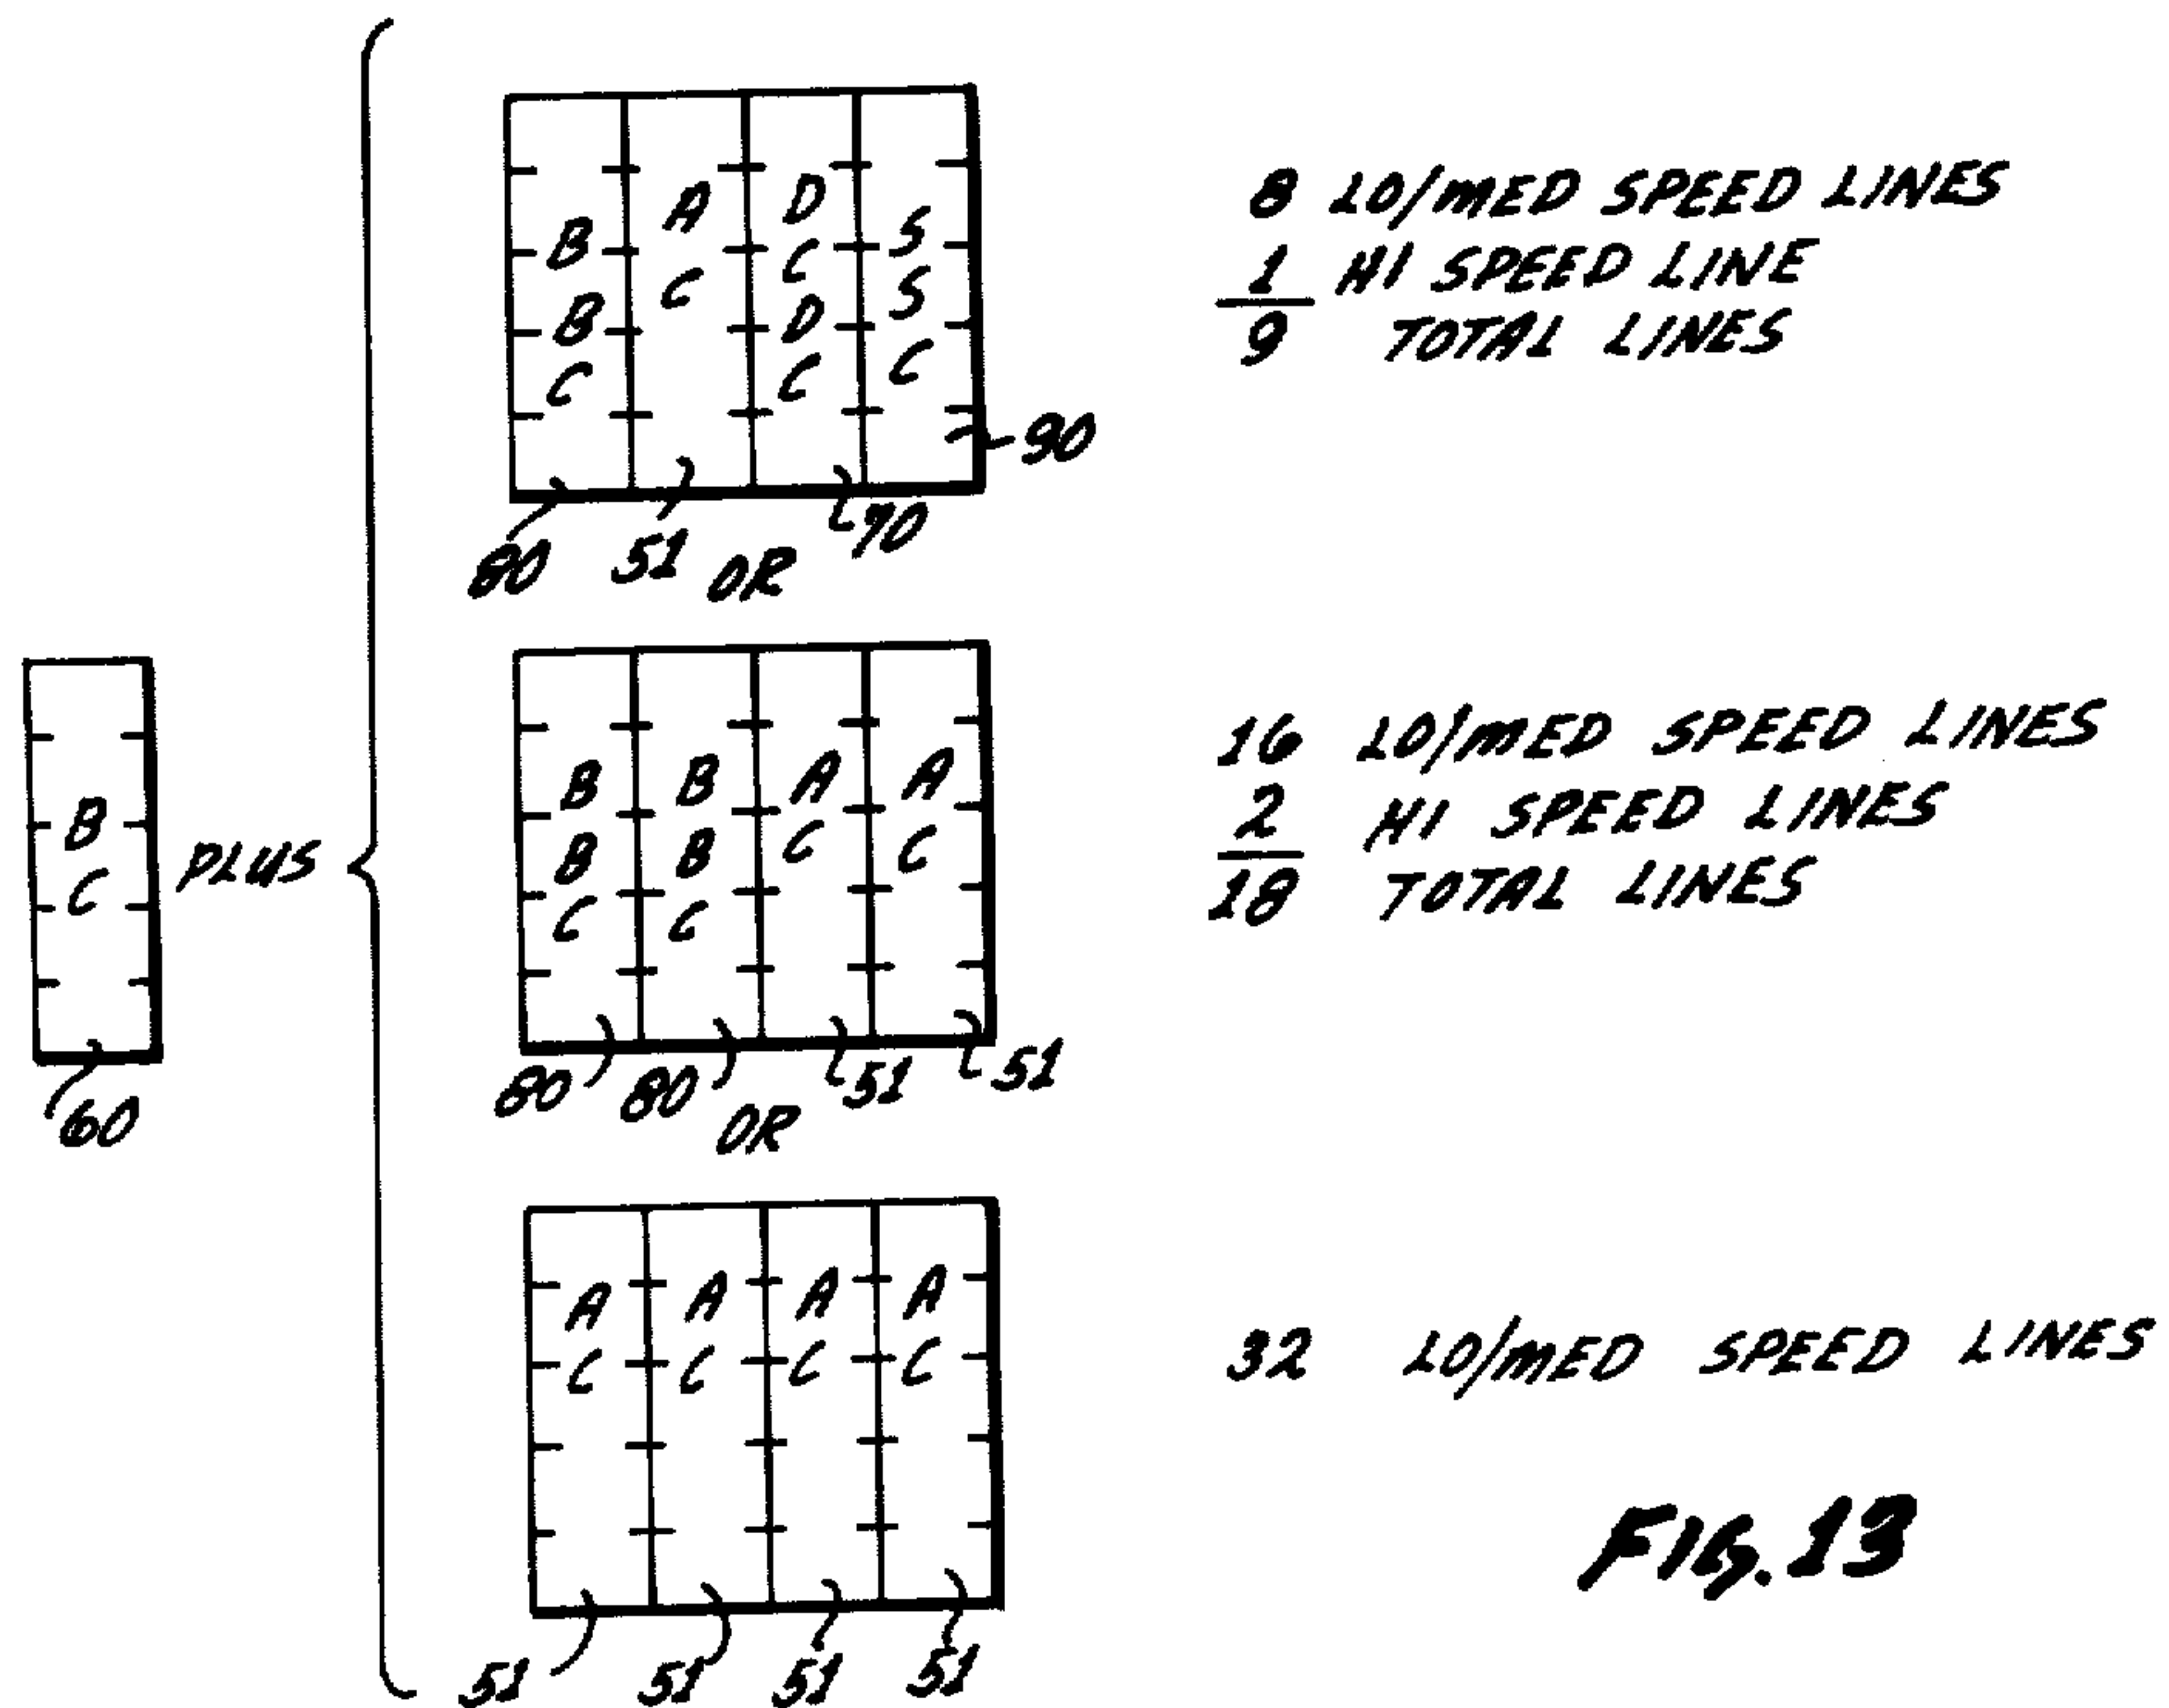 B
C
60
PLUS
B
B
C
A
C
D
C
D
C
S
S
C
90
80
51
70
OR
8 LO/MED SPEED LINES
1 HI SPEED LINE
9 TOTAL LINES
B
B
C
B
B
C
A
C
A
C
80
80
51
51
OR
16 LO/MED SPEED LINES
2 HI SPEED LINES
18 TOTAL LINES
A
C
A
C
A
C
A
C
51
51
51
51
32 LO/MED SPEED LINES
FIG. 13